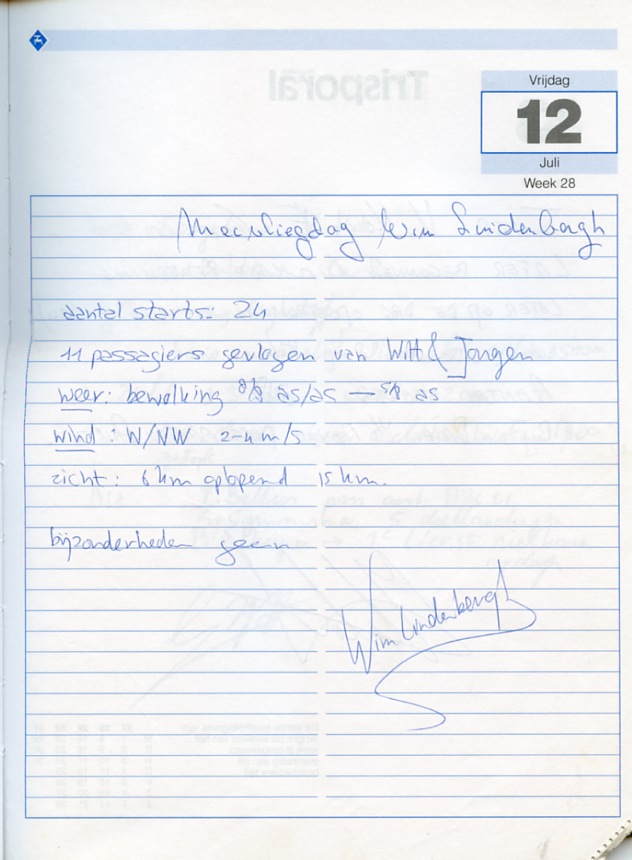 Vrijdag
12
Juli
Week 28
Meevliegdag Wim Lindenbergh
aantal starts: 24
11 passagiers gevlogen van Witt & Jongen
weer: bewolking 8/8 as/as — 5/8 as
wind: W/NW 2-4 m/s
zicht: 6 km oplopend 15 km.
bijzonderheden geen
Wim Lindenbergh